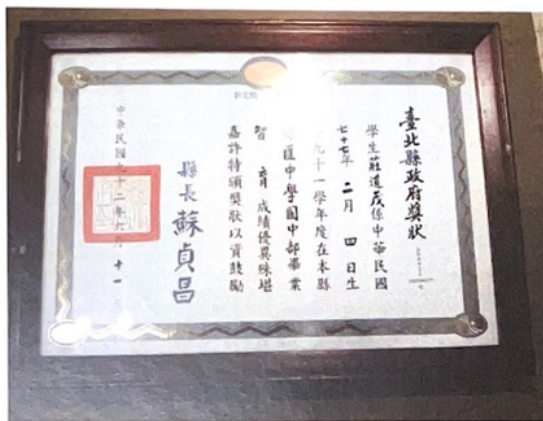 臺北縣政府獎狀
學生莊道茂係中華民國
七十七年 二月 四日生
九十一學年度在本縣
匯中學國中部畢業
智育成績優異殊堪
嘉許特頒獎狀以資鼓勵
縣長 蘇貞昌
中華民國九十二年六月十一